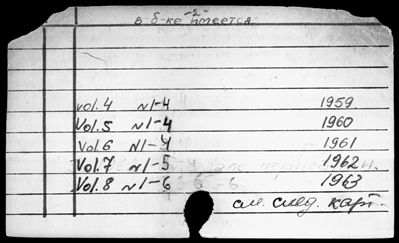 -2-
в б-ке имеется:
Vol. 4 N1-4 1959
Vol. 5 N1-4 1960
Vol. 6 N1-4 1961
Vol. 7 N1-5 1962
Vol. 8 N1-6 1963
см. след. карт.